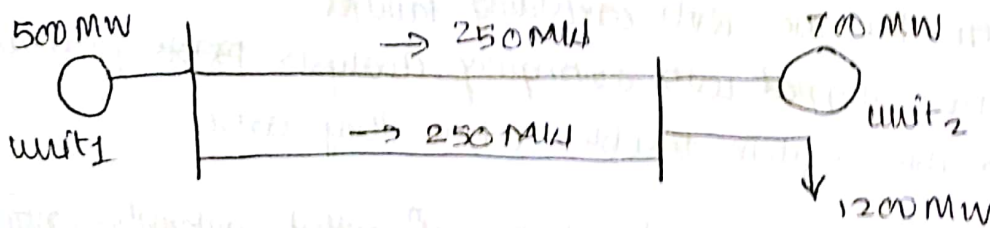 500 MW
→ 250 MW
700 MW
unit1
→ 250 MW
unit2
1200 MW